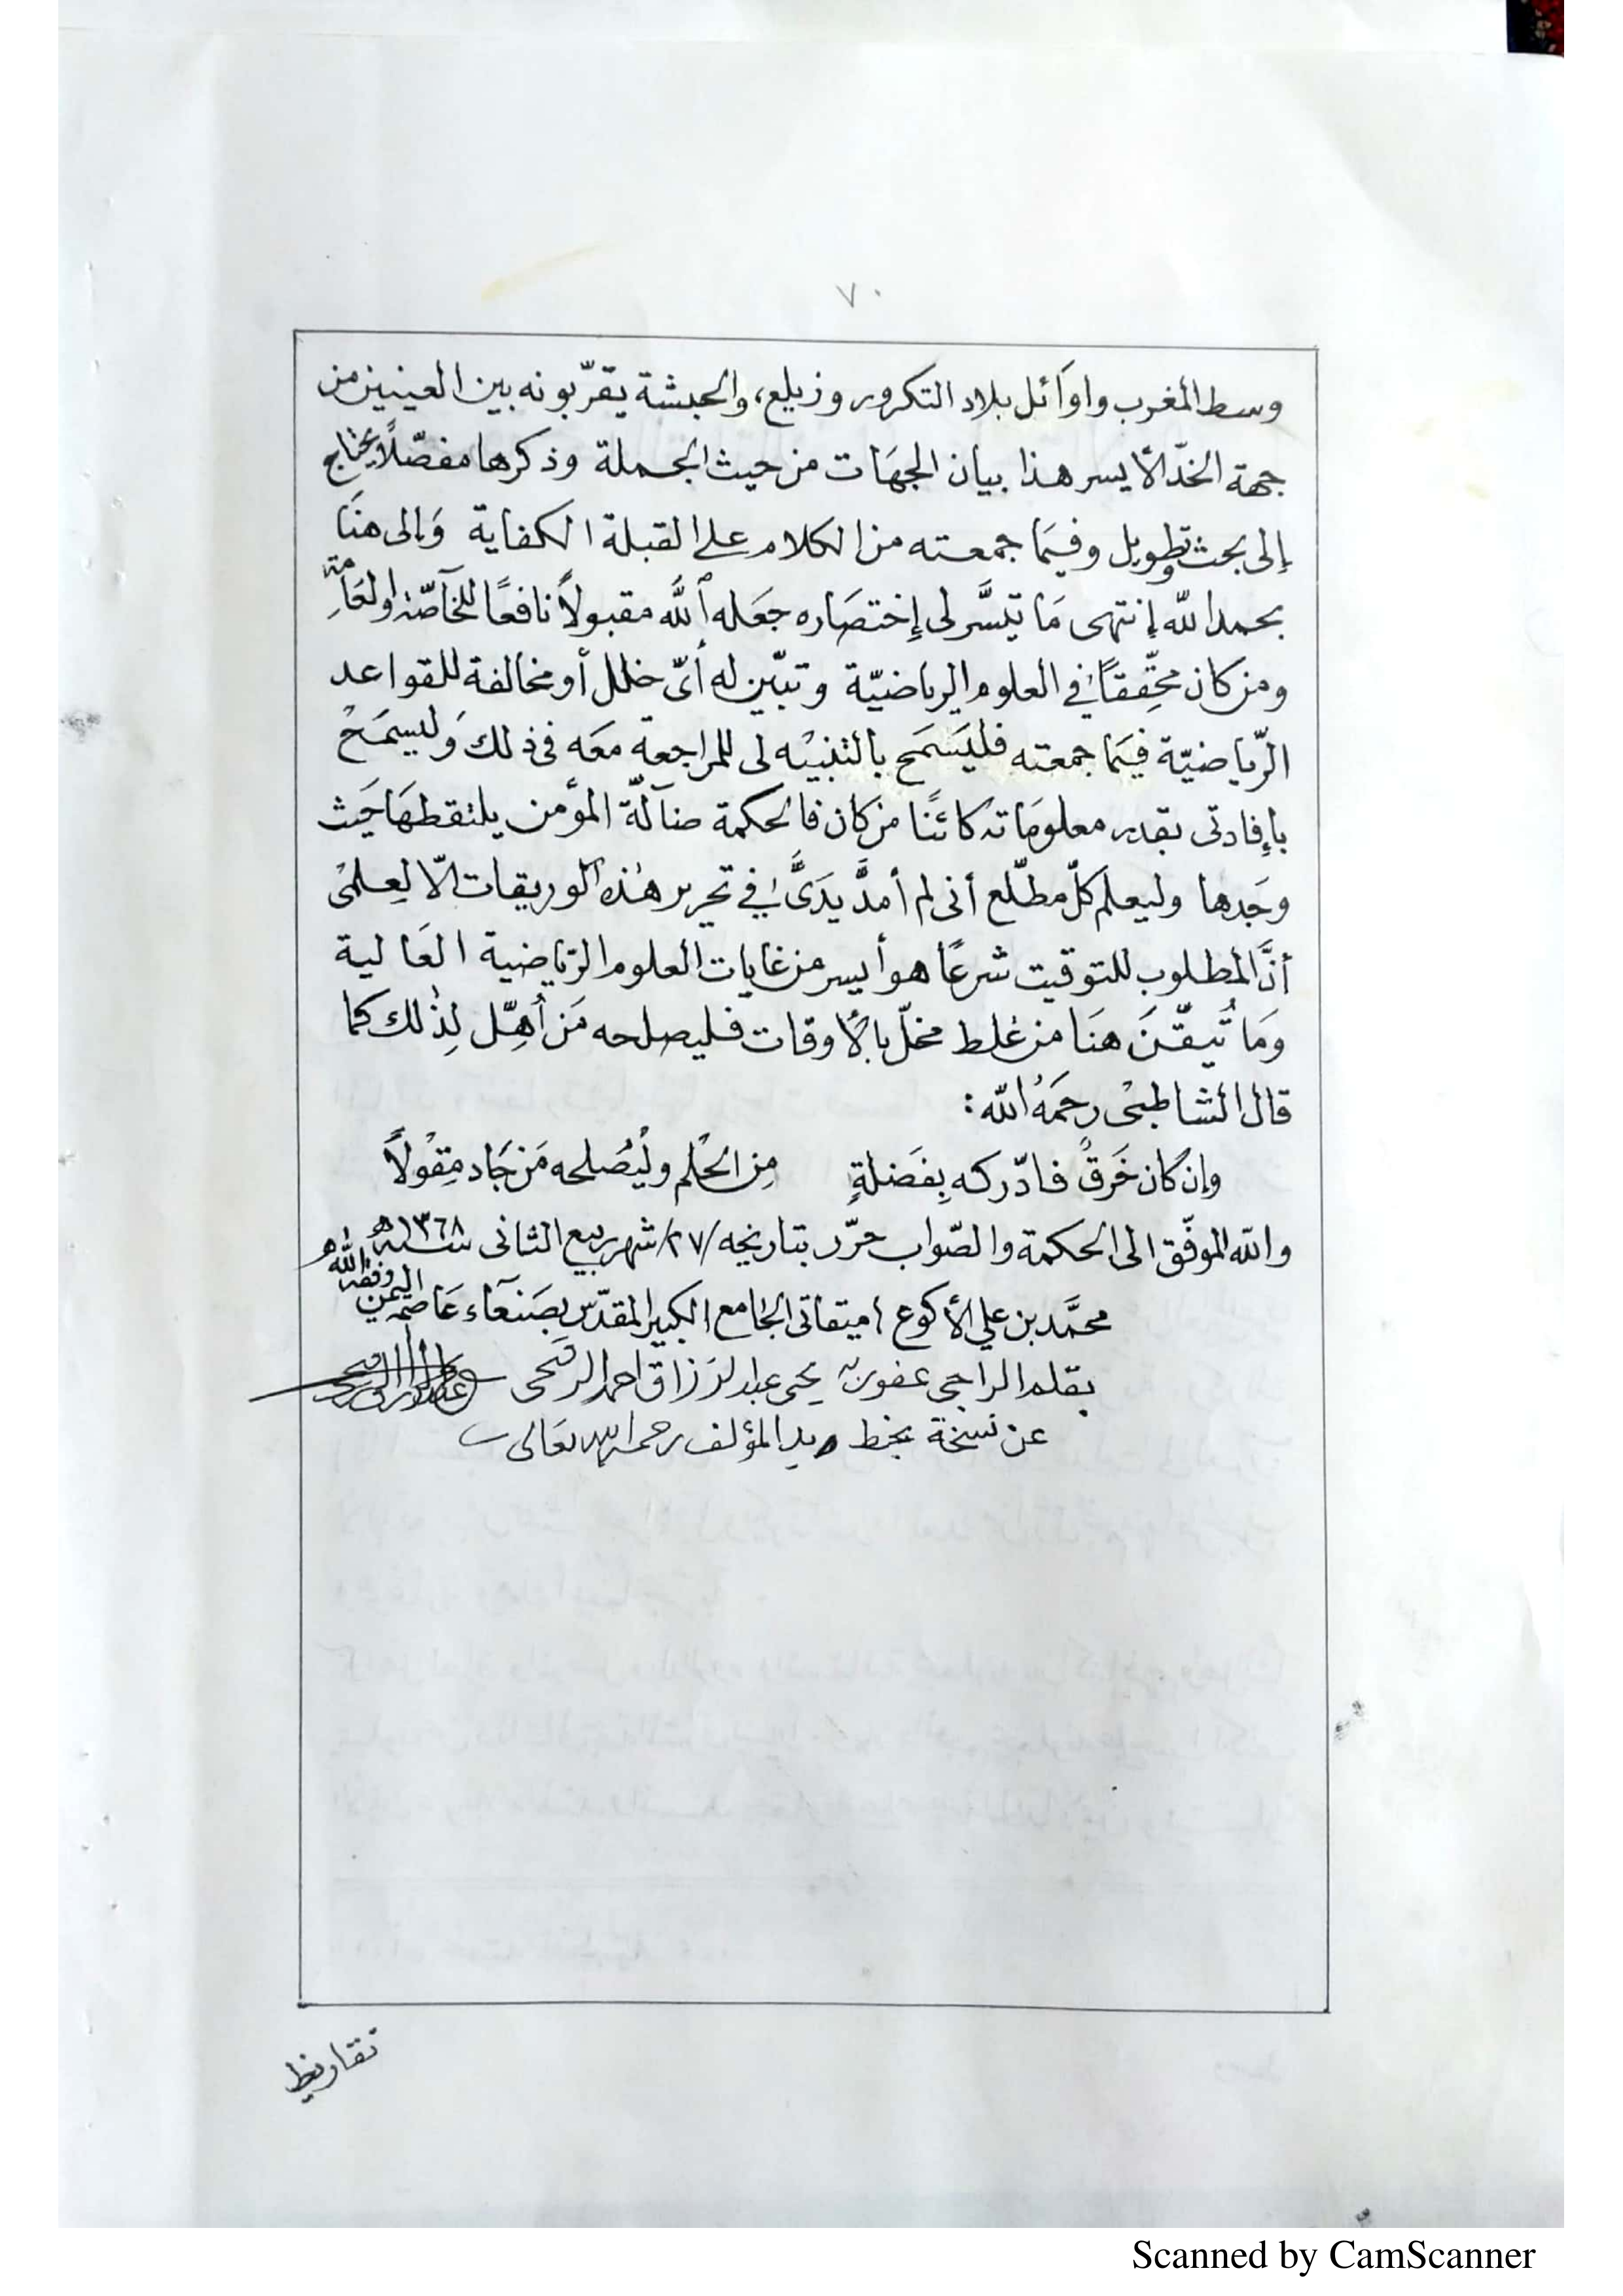 ٧٠
وسط المغرب واوَائل بلاد التكرور وزيلع، والحبشة يقرّبونه بين العينين من
جهة الخدّ الأيسر هذا بيان الجهَات من حيث الجملة وذكرها مفصّلاً يحتاج
إلى بحث وتطويل وفيمَا جمعته من الكلام على القبلة الكفاية وَإلى هنَا
بحمد الله إنتهى مَا تيَسَّر لى إختصَاره جعَله ٱللَّه مقبولاً نافعًا للخآصّة والعَامّة
ومن كان محِّققًا في العلوم الرياضيّة وتبّين له أىّ خلل أو مخالفة للقواعد
الرّياضيّة فيمَا جمعته فليَسَمح بالتنبيْه لى للمراجعة معَه فى ذلك وَليسمَحْ
بإفادتى بقدر معلومَاته كائنًا من كان فالحكمة ضآلّة المؤمن يلتقطهَا حَيث
وجَدها وليعلم كلّ مطّلع أنى لم أمدَّ يدَىَّ في تحرير هٰذه الوريقات الّا لِعِلمىْ
أنَّ المطلوب للتوقيت شرعًا هو أيسر من غايات العلوم الرّياضية العَالية
وَمَا تُيقّنَ هنَا من غلط مخلّ بالأوقات فليصلحه مَن أُهِّل لِذٰلك كما
قال الشاطبىْ رحمَهُ الله :
وإن كان خَرقٌ فادّركه بِفَضلةٍ مِن الحْلم وليُصْلحه مَن جَاد مِقْولاً
والله الموفّق الى الحكمة والصّواب حرّر بتاريخه /٢٧/ شهر ربيع الثانى سنة ١٣٦٨ھ
محمَّد بن علي الأكوع ميقاتى الجامع الكبير المقدّس بصَنعآء عَاصمة اليمن وفقه الله
بقلم الراجى عفو ربه يحيى عبد الرزاق احمد الرقيحى
عن نسخة بخط يد المؤلف رحمه الله تعالى
تقاريظ
Scanned by CamScanner